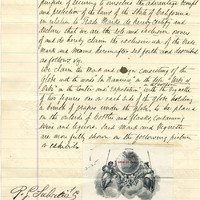 purpose of securing to ourselves the advantage benefit
and protection of the Laws of the State of California
in relation to Trade Marks do hereby certify and
declare that we are the sole and exclusive owners
of and do hereby claim the exclusive use of the Trade
Mark and Name hereinafter set forth and described
as follows viz
We claim the Mark and consisting of the
globe with the words in the
in the centre and with the Vignette
of two figures on each side of the globe holding
a bunch of grapes under the globe to be placed
on the outside of bottles and flasks, containing
wines and liquors. Said Mark and Vignette
are more fully shown in the following picture
or exhibit